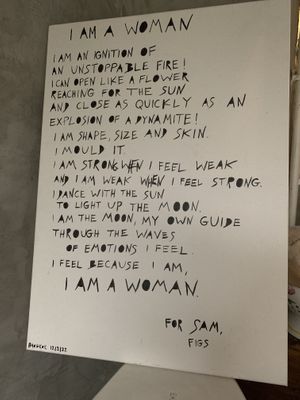 I AM A WOMAN
I AM AN IGNITION OF
AN UNSTOPPABLE FIRE!
I CAN OPEN LIKE A FLOWER
REACHING FOR THE SUN
AND CLOSE AS QUICKLY AS AN
EXPLOSION OF A DYNAMITE!
I AM SHAPE, SIZE AND SKIN.
I MOULD IT.
I AM STRONG WHEN I FEEL WEAK
AND I AM WEAK WHEN I FEEL STRONG.
I DANCE WITH THE SUN
TO LIGHT UP THE MOON.
I AM THE MOON, MY OWN GUIDE
THROUGH THE WAVES
OF EMOTIONS I FEEL.
I FEEL BECAUSE I AM,
I AM A WOMAN.
FOR SAM,
FIGS